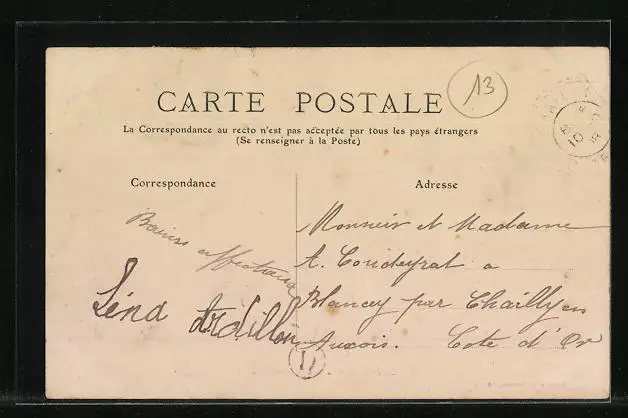 13
CARTE POSTALE
La Correspondance au recto n'est pas acceptée par tous les pays étrangers
(Se renseigner à la Poste)
Correspondance
Adresse
Baisers affectueux
Léna Ardillon
Monsieur et Madame
A. Coudeyrat a
Blancey par Chailly en
Auxois. Cote d'Or